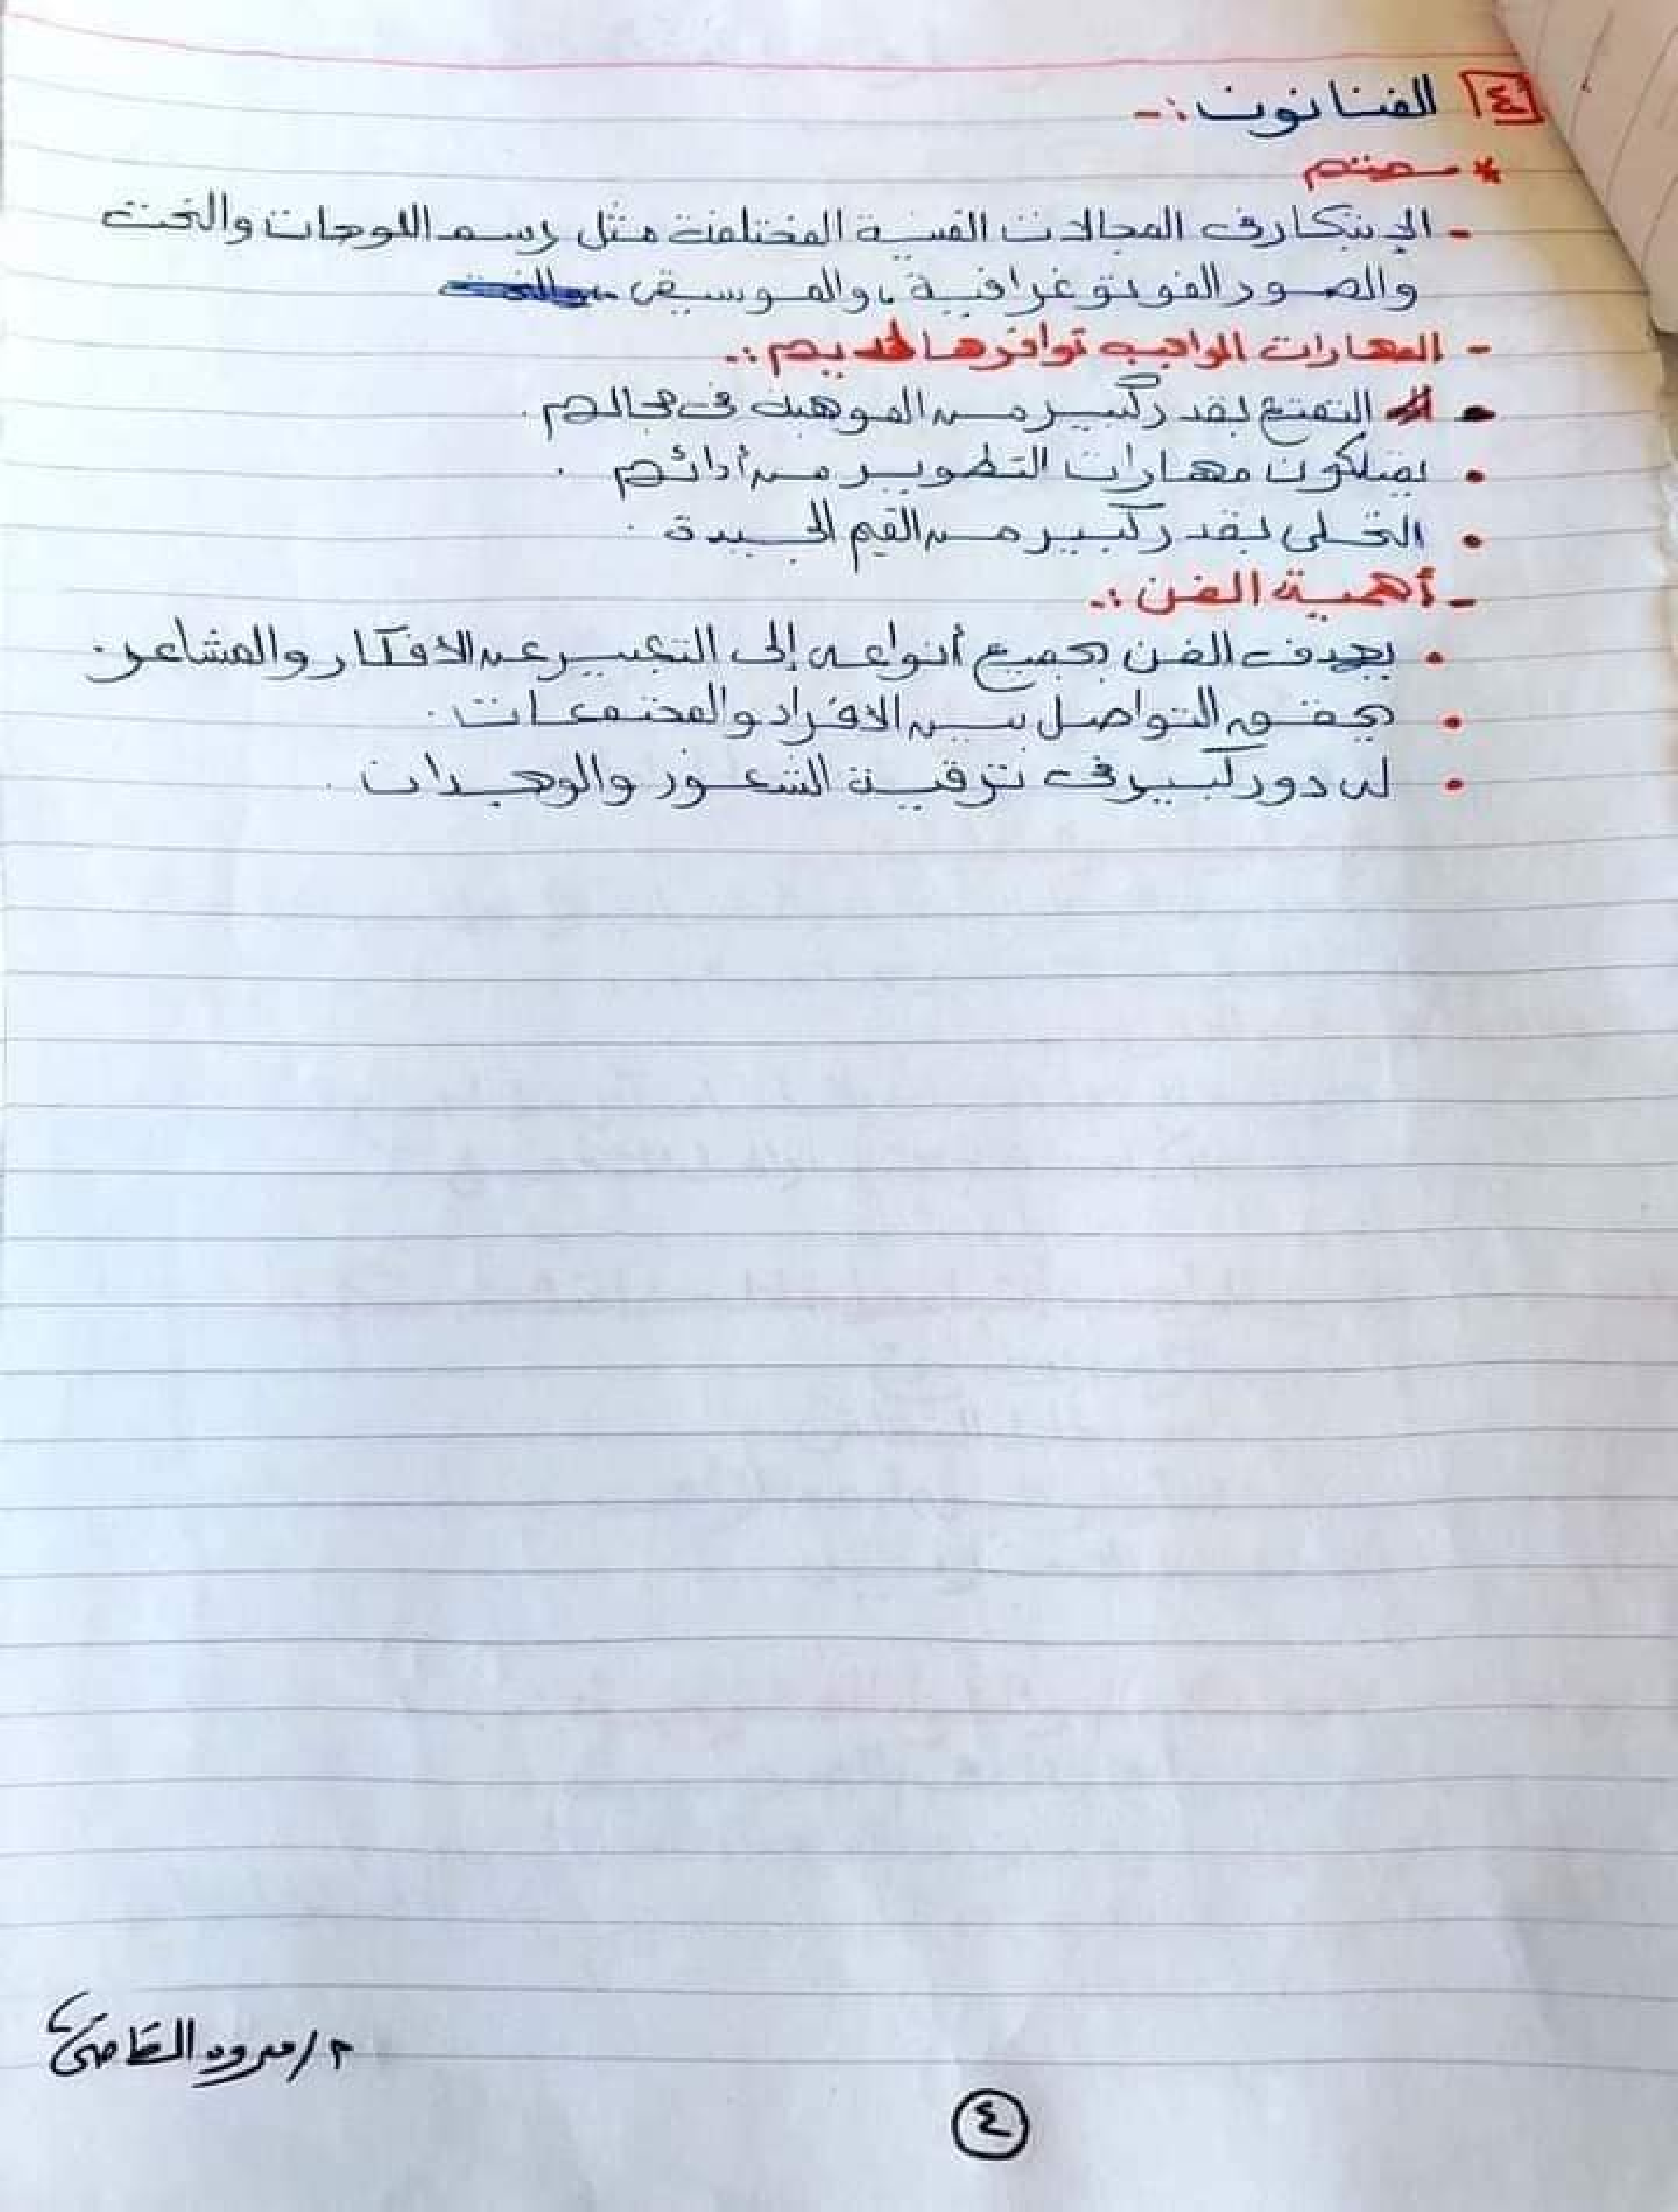 ٤ الفنانون :-
* مهنتهم
- الإبتكار فى المجالات الفنية المختلفة مثل رسم اللوحات والنحت
والصور الفوتوغرافية ، والموسيقى
- المهارات الواجب توافرها لديهم :-
• التمتع بقدر كبير من الموهبة فى مجالهم .
• يمتلكون مهارات التطوير من أدائهم .
• التحلى بقدر كبير من القيم الجيدة .
- أهمية الفن :-
• يهدف الفن بجميع أنواعه إلى التعبير عن الافكار والمشاعر .
• يحقق التواصل بين الافراد والمجتمعات .
• له دور كبير فى ترقية الشعور والوجدان .
م / مروه القاضى
٤